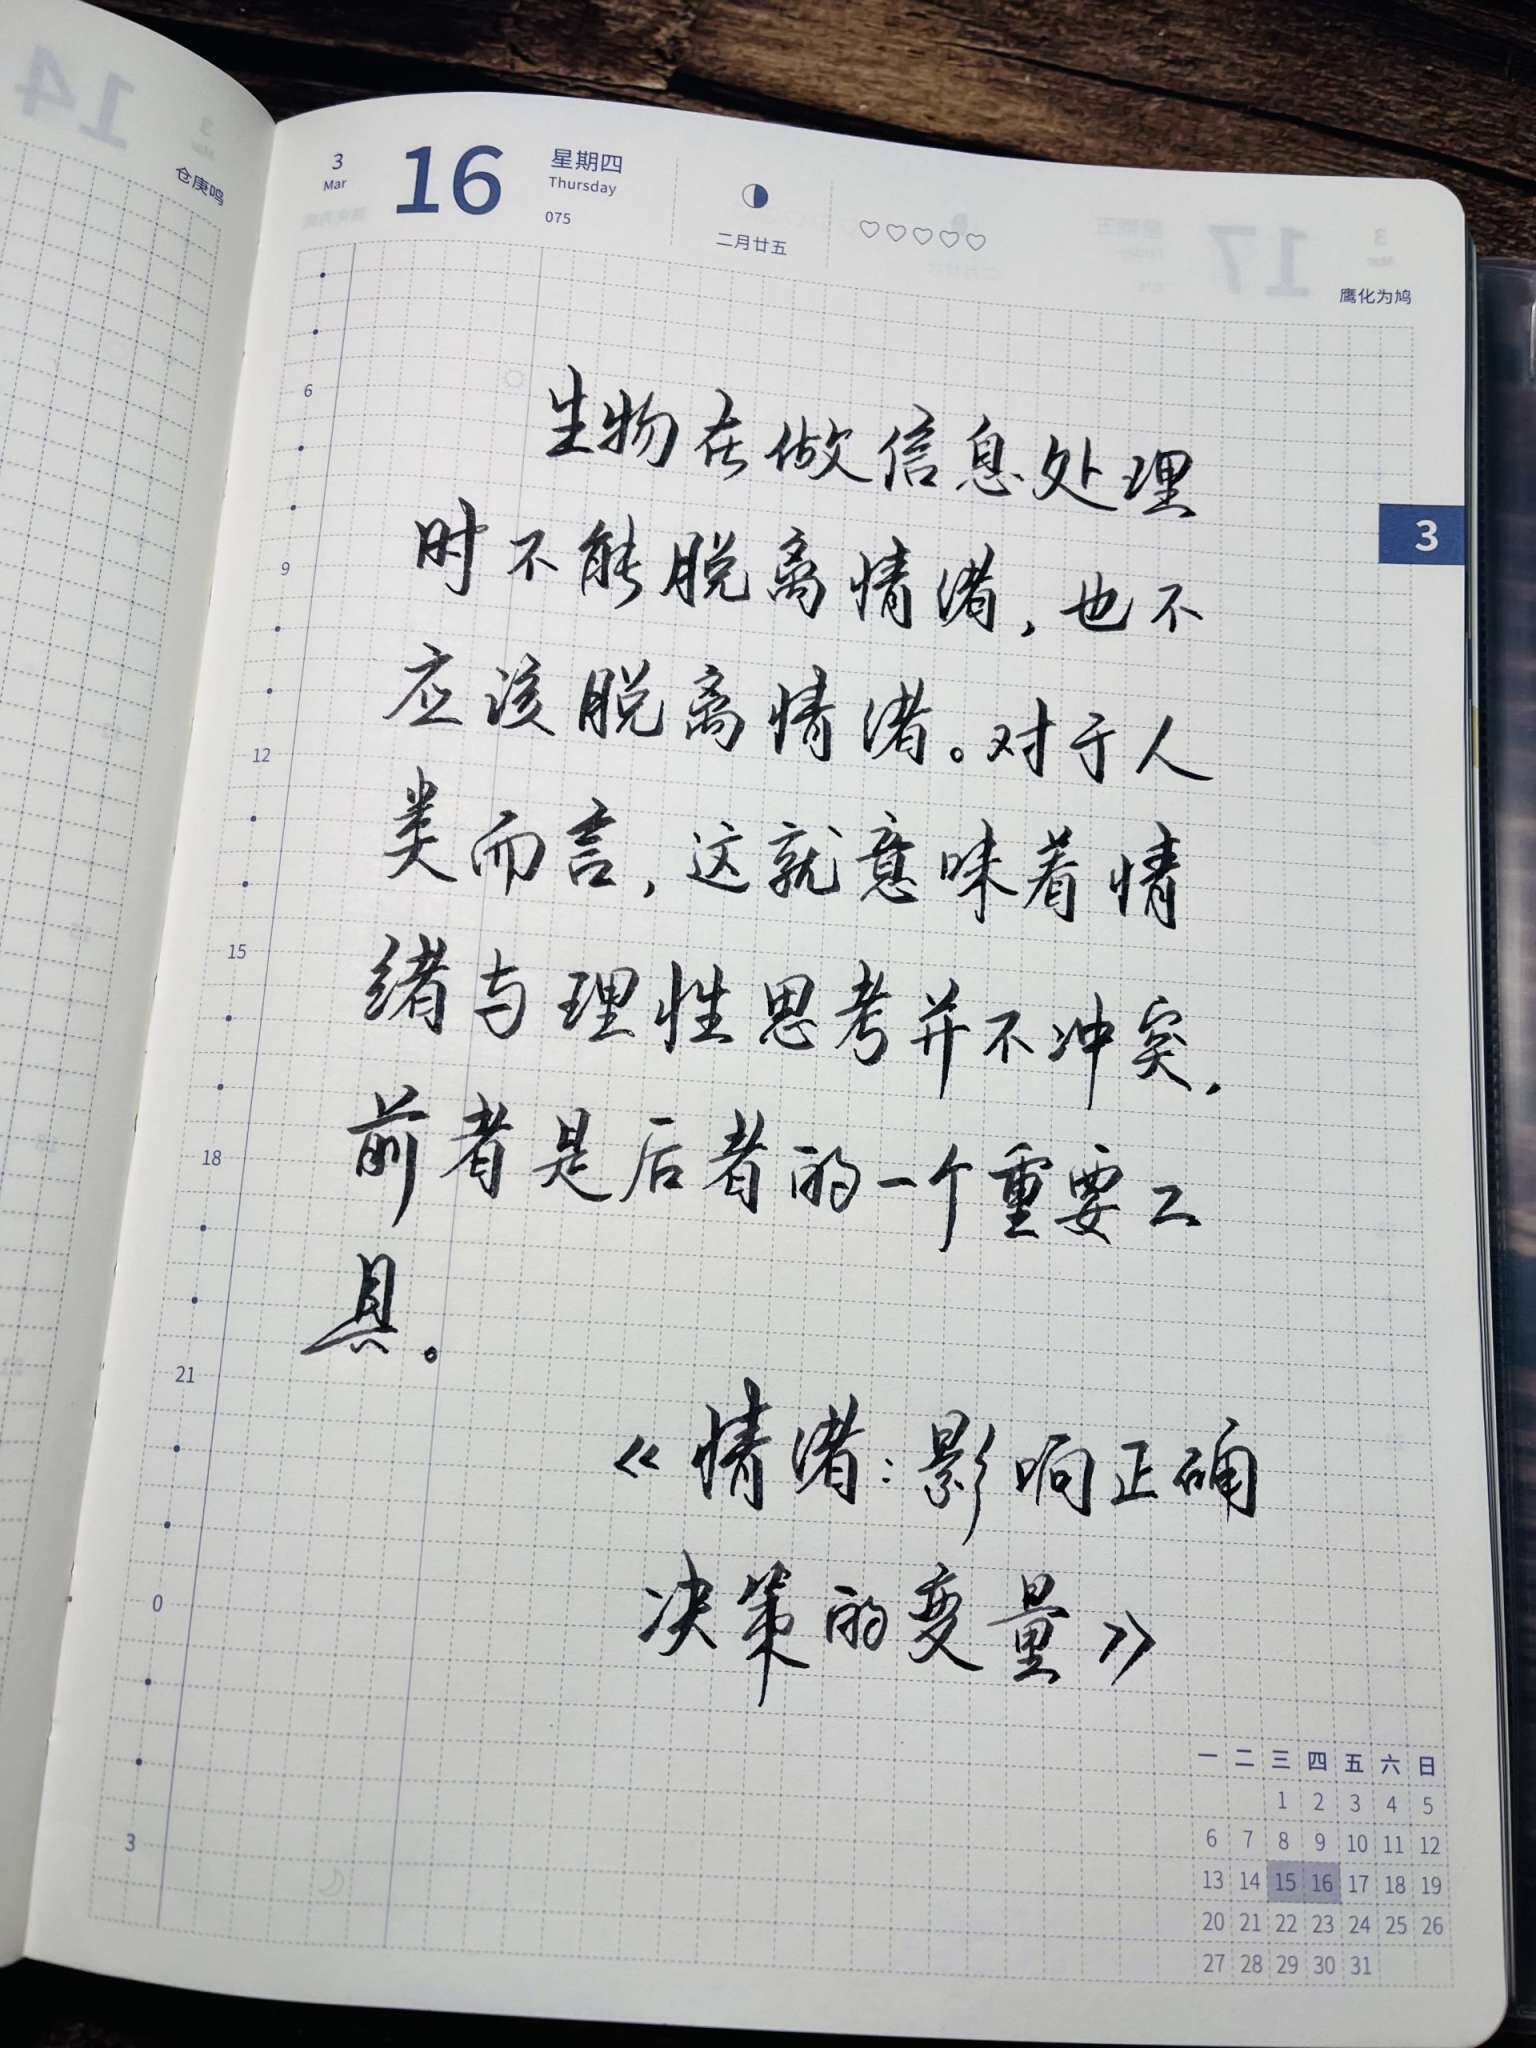 14
3
仓庚鸣
3
Mar
16
星期四
Thursday
075
二月廿五
17
鹰化为鸠
3
6
9
12
15
18
21
0
3
生物在做信息处理
时不能脱离情绪，也不
应该脱离情绪。对于人
类而言，这就意味着情
绪与理性思考并不冲突，
前者是后者的一个重要工
具。
《情绪：影响正确
决策的变量》
一 二 三 四 五 六 日
1 2 3 4 5
6 7 8 9 10 11 12
13 14 15 16 17 18 19
20 21 22 23 24 25 26
27 28 29 30 31